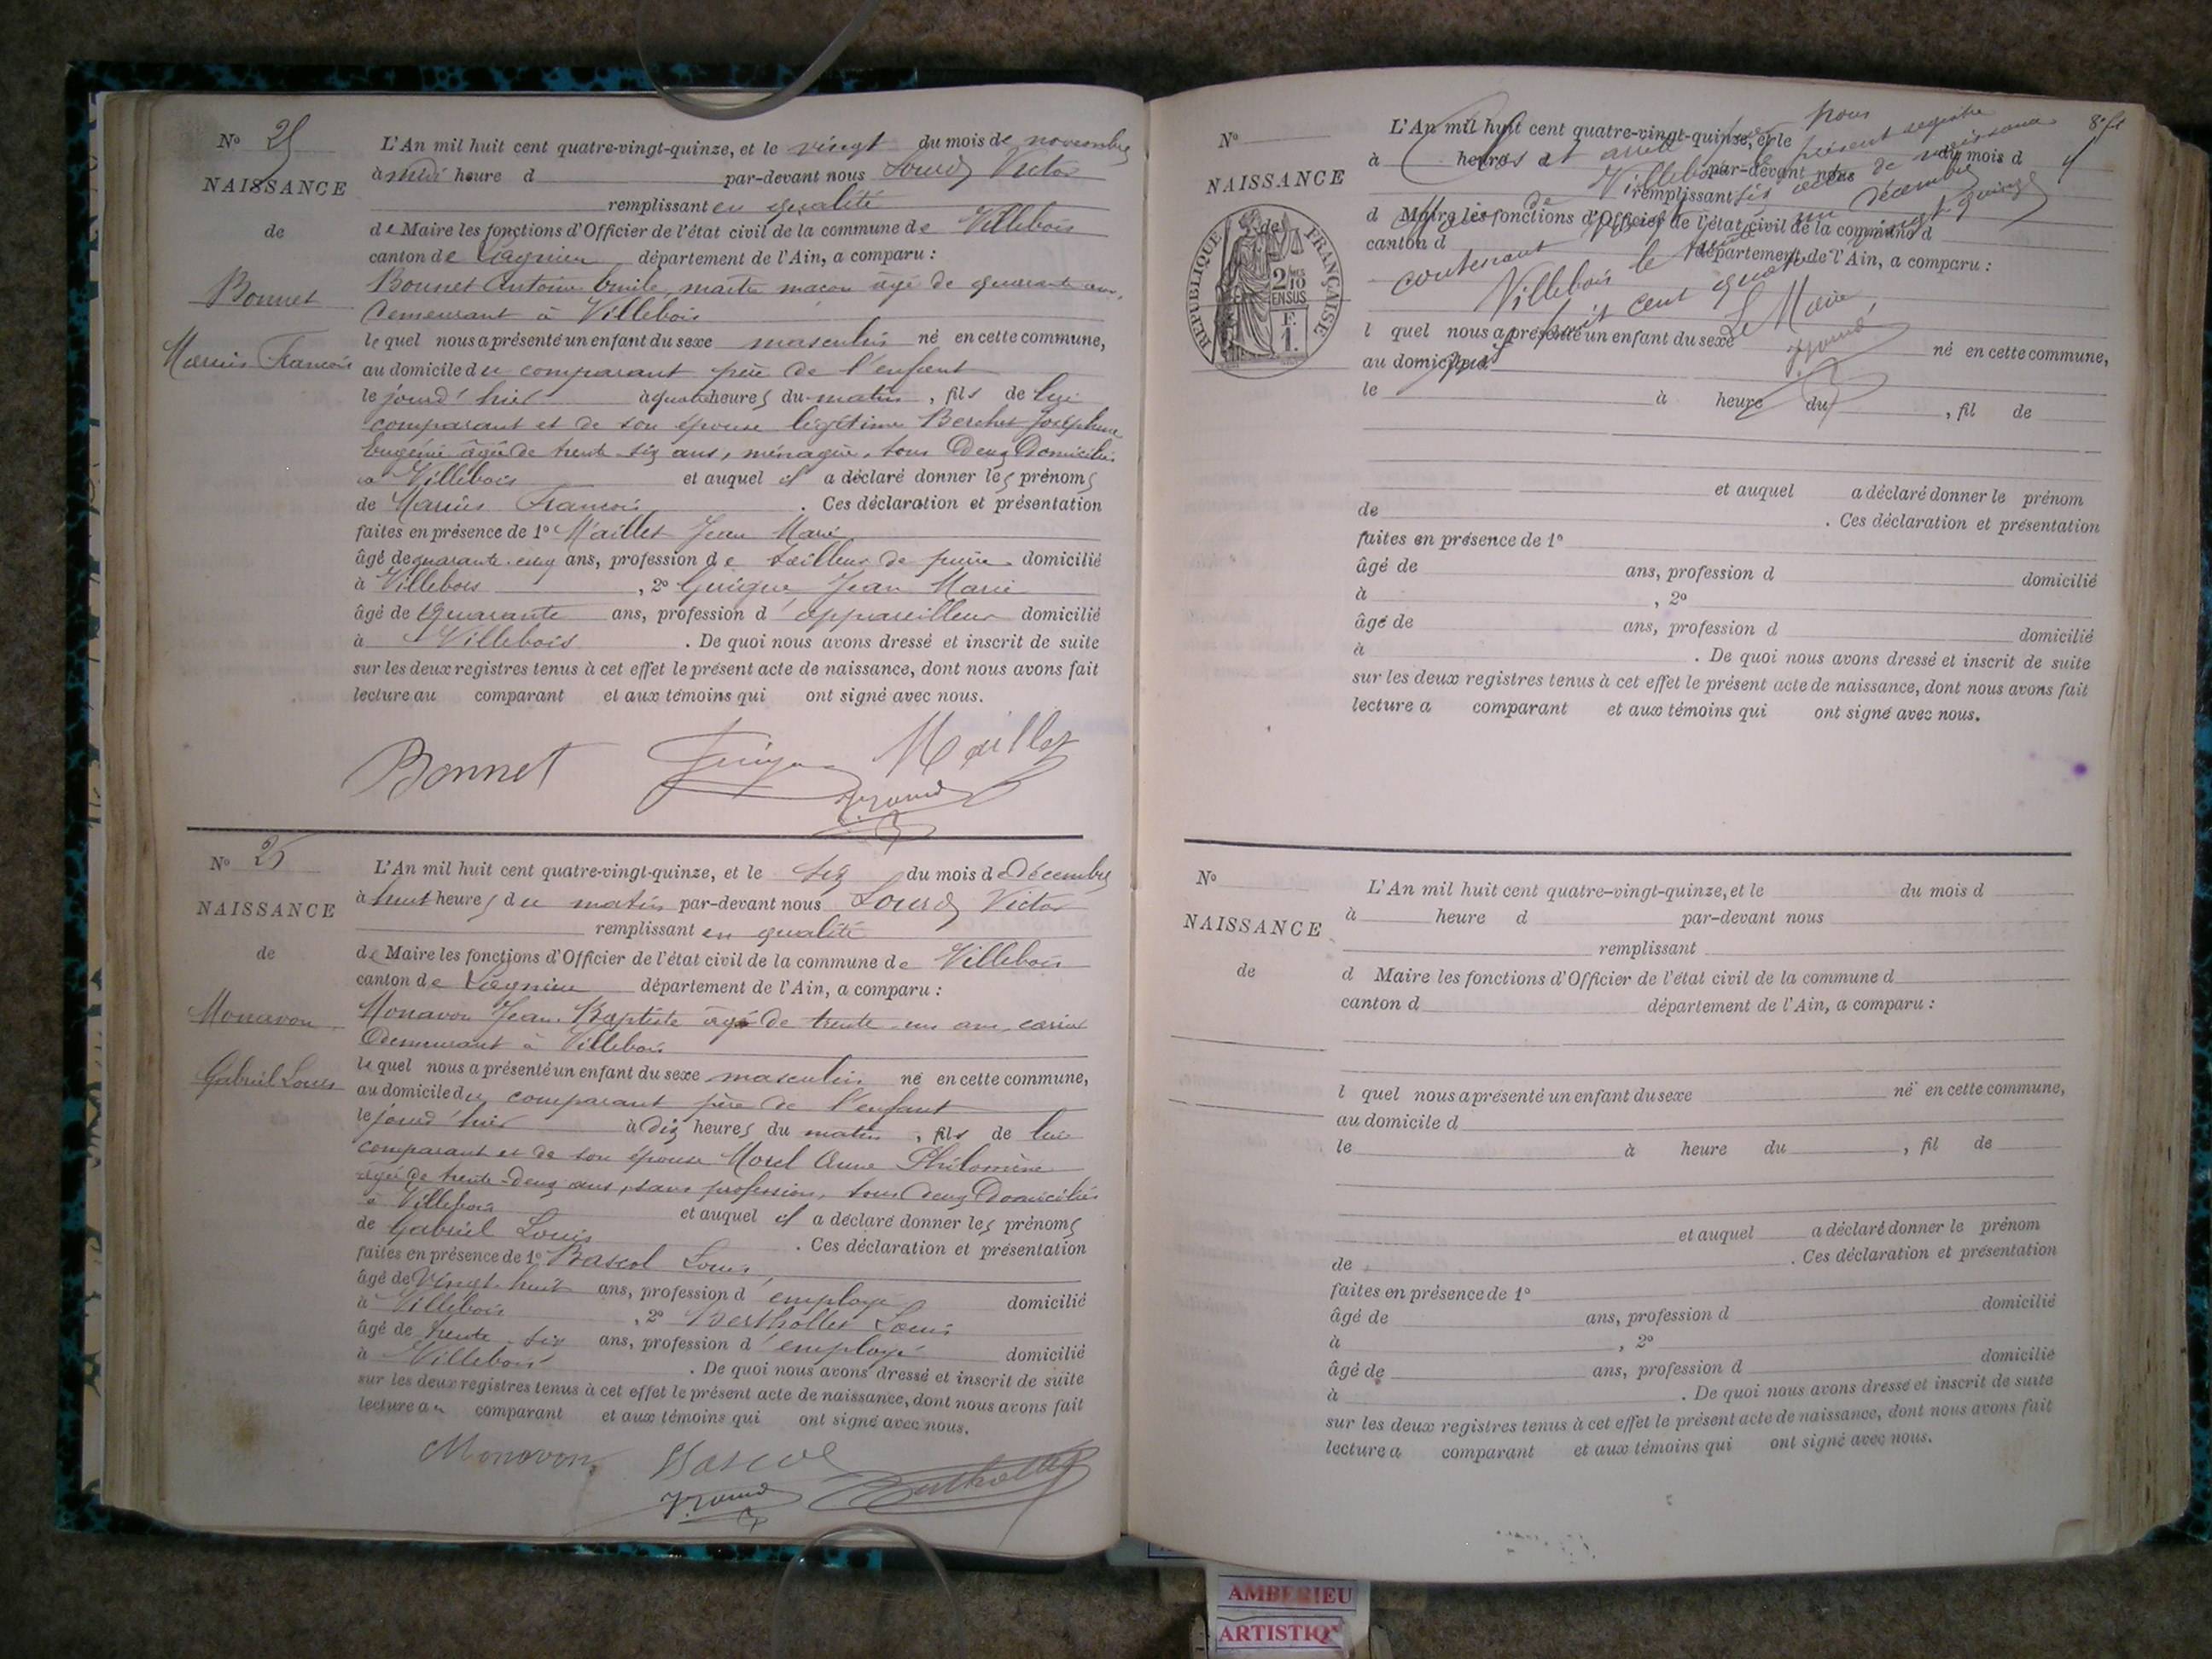 No 25
NAISSANCE
de
Bonnet
Marius François
L'An mil huit cent quatre-vingt-quinze, et le vingt du mois de novembre
à midi heure d par-devant nous Victor
remplissant en qualité
de Maire les fonctions d'Officier de l'état civil de la commune de Villebois
canton de Lagnieu département de l'Ain, a comparu :
Bonnet Antoine Emile, maître maçon âgé de quarante ans,
demeurant à Villebois
lequel nous a présenté un enfant du sexe masculin né en cette commune,
au domicile du comparant père de l'enfant
le jourd'hier à quatre heures du matin, fils de lui
comparant et de son épouse légitime Berchet Joséphine
Eugénie âgée de trente-six ans, ménagère, tous deux domiciliés
à Villebois et auquel il a déclaré donner les prénoms
de Marius François. Ces déclaration et présentation
faites en présence de 1o Maillet Jean Marie
âgé de quarante-cinq ans, profession de tailleur de pierre domicilié
à Villebois, 2o Guigue Jean Marie
âgé de quarante ans, profession d'appareilleur domicilié
à Villebois. De quoi nous avons dressé et inscrit de suite
sur les deux registres tenus à cet effet le présent acte de naissance, dont nous avons fait
lecture au comparant et aux témoins qui ont signé avec nous.
Bonnet Guigue Maillet
No 26
NAISSANCE
de
Monavon
Gabriel Louis
L'An mil huit cent quatre-vingt-quinze, et le six du mois de Décembre
à huit heures du matin par-devant nous Victor
remplissant en qualité
de Maire les fonctions d'Officier de l'état civil de la commune de Villebois
canton de Lagnieu département de l'Ain, a comparu :
Monavon Jean-Baptiste âgé de trente-un ans, carrier
demeurant à Villebois
lequel nous a présenté un enfant du sexe masculin né en cette commune,
au domicile du comparant père de l'enfant
le jourd'hier à dix heures du matin, fils de lui
comparant et de son épouse Morel Anne Philomène
âgée de trente-deux ans, sans profession, tous deux domiciliés
à Villebois et auquel il a déclaré donner les prénoms
de Gabriel Louis. Ces déclaration et présentation
faites en présence de 1o Bascol Louis,
âgé de vingt-huit ans, profession d'employé domicilié
à Villebois, 2o Berthollet Louis
âgé de trente-six ans, profession d'employé domicilié
à Villebois. De quoi nous avons dressé et inscrit de suite
sur les deux registres tenus à cet effet le présent acte de naissance, dont nous avons fait
lecture au comparant et aux témoins qui ont signé avec nous.
Monavon Bascol
Berthollet
8e ft
No
NAISSANCE
de
RÉPUBLIQUE FRANÇAISE
2/10 EN SUS
F.
1.
L'An mil huit cent quatre-vingt-quinze, et le
à heure d par-devant nous du mois d
remplissant
d Maire les fonctions d'Officier de l'état civil de la commune d
canton d département de l'Ain, a comparu :
l quel nous a présenté un enfant du sexe né en cette commune,
au domicile d
le à heure du , fil de
et auquel a déclaré donner le prénom
de . Ces déclaration et présentation
faites en présence de 1o
âgé de ans, profession d domicilié
à , 2o
âgé de ans, profession d domicilié
à . De quoi nous avons dressé et inscrit de suite
sur les deux registres tenus à cet effet le présent acte de naissance, dont nous avons fait
lecture a comparant et aux témoins qui ont signé avec nous.
Clos et arrêté par nous
Maire de Villebois le présent registre
contenant actes de naissance
Villebois le décembre
mil huit cent quatre vingt quinze
Le Maire,
No
NAISSANCE
de
L'An mil huit cent quatre-vingt-quinze, et le du mois d
à heure d par-devant nous
remplissant
d Maire les fonctions d'Officier de l'état civil de la commune d
canton d département de l'Ain, a comparu :
l quel nous a présenté un enfant du sexe né en cette commune,
au domicile d
le à heure du , fil de
et auquel a déclaré donner le prénom
de . Ces déclaration et présentation
faites en présence de 1o
âgé de ans, profession d domicilié
à , 2o
âgé de ans, profession d domicilié
à . De quoi nous avons dressé et inscrit de suite
sur les deux registres tenus à cet effet le présent acte de naissance, dont nous avons fait
lecture a comparant et aux témoins qui ont signé avec nous.
AMBERIEU
ARTISTIQ